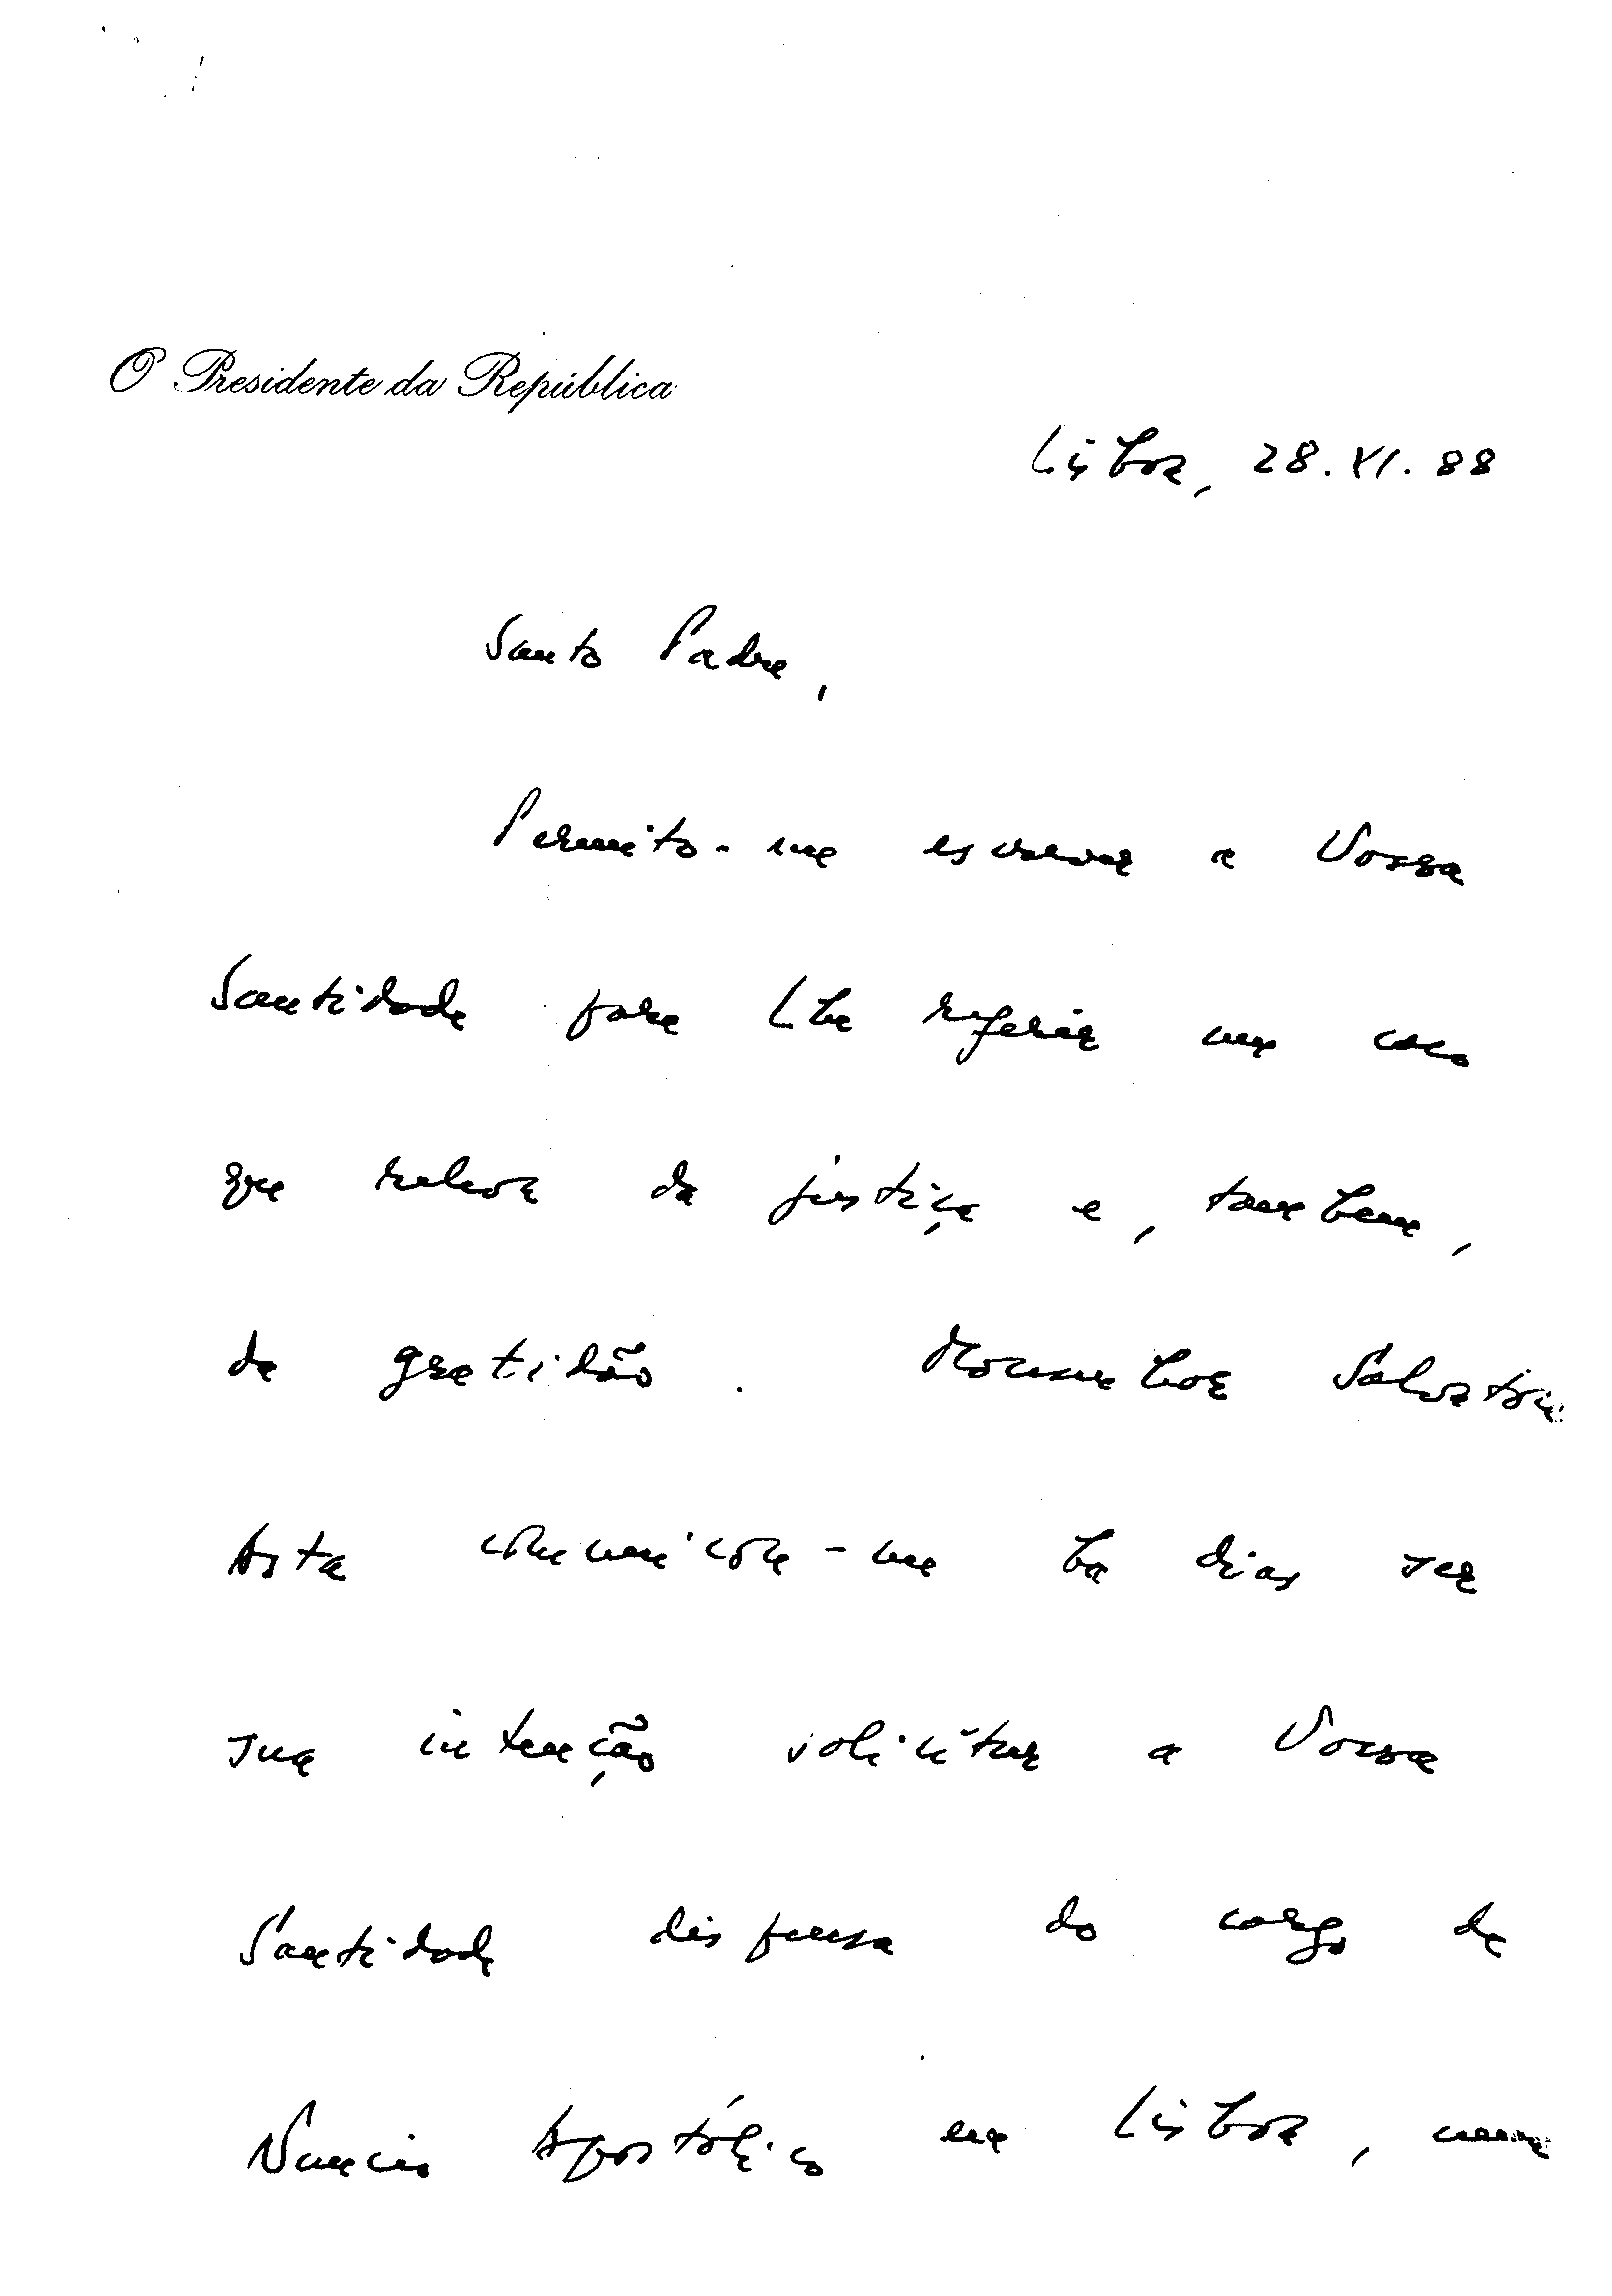 O Presidente da República
Lisboa, 28.XI.88
Santo Padre,
Permito-me escrever a Vossa
Santidade para Lhe referir um caso
que releva da justiça e, tambem,
da gratidão. Monsenhor Salvatore
Asta comunicou-me ha dias ser
sua intenção solicitar a Vossa
Santidade dispensa do cargo de
Nuncio Apostólico em Lisboa, num